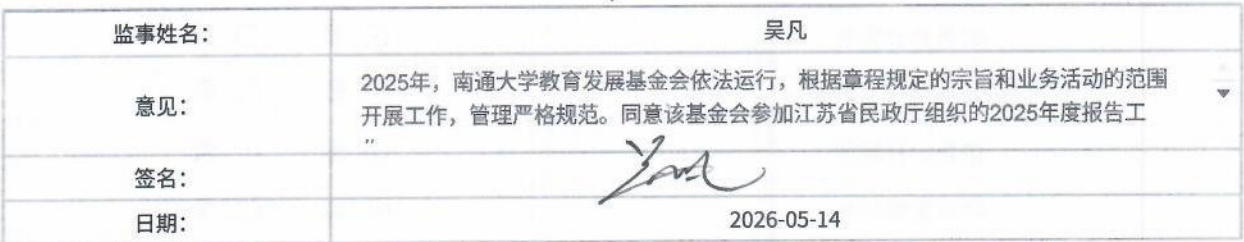 监事姓名： 吴凡
意见：
2025年，南通大学教育发展基金会依法运行，根据章程规定的宗旨和业务活动的范围
开展工作，管理严格规范。同意该基金会参加江苏省民政厅组织的2025年度报告工
签名：
日期： 2026-05-14